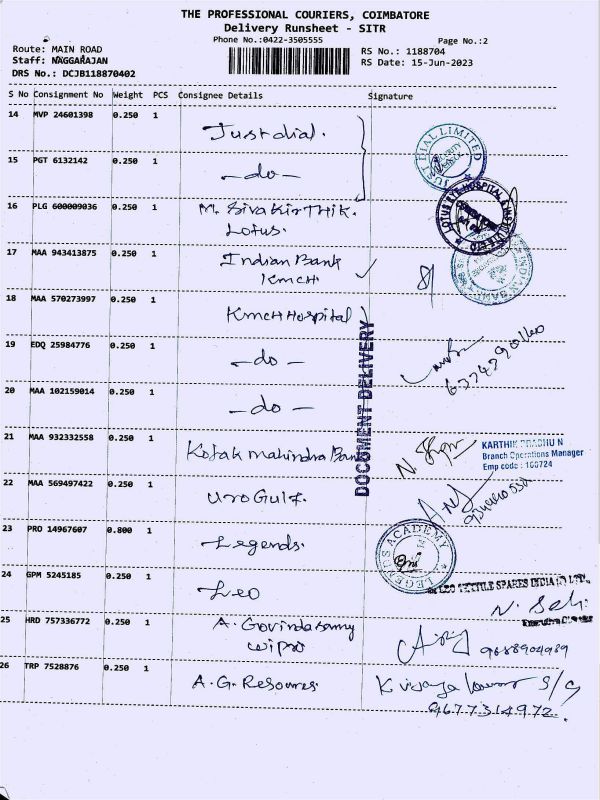 THE PROFESSIONAL COURIERS, COIMBATORE
Delivery Runsheet - SITR
Phone No.:0422-3505555
Page No.:2
Route: MAIN ROAD
Staff: NAGGARAJAN
DRS No.: DCJB118870402
RS No.: 1188704
RS Date: 15-Jun-2023
S No Consignment No Weight PCS Consignee Details Signature
14 MVP 24601398 0.250 1 Justdial.
JUST DIAL LIMITED
15 PGT 6132142 0.250 1 -do-
16 PLG 600009036 0.250 1 M. SivakirThik.
Lotus.
17 MAA 943413875 0.250 1 Indian Bank
KMCH
18 MAA 570273997 0.250 1 KMCH Hospital
19 EDQ 25984776 0.250 1 -do-
20 MAA 102159014 0.250 1 -do-
DOCUMENT DELIVERY
21 MAA 932332558 0.250 1 Kotak Mahindra Bank
KARTHIK PRABHU N
Branch Operations Manager
Emp code : 160724
22 MAA 569497422 0.250 1 UroGulf.
23 PRO 14967607 0.800 1 Legends.
LEGENDS ACADEMY
24 GPM 5245185 0.250 1 Leo
LEO TEXTILE SPARES INDIA (P) LTD.,
25 HRD 757336772 0.250 1 A. Govindasamy
Wipro
9688904989
26 TRP 7528876 0.250 1 A.G. Resources
K vijaya kumar S/G
9677314972.